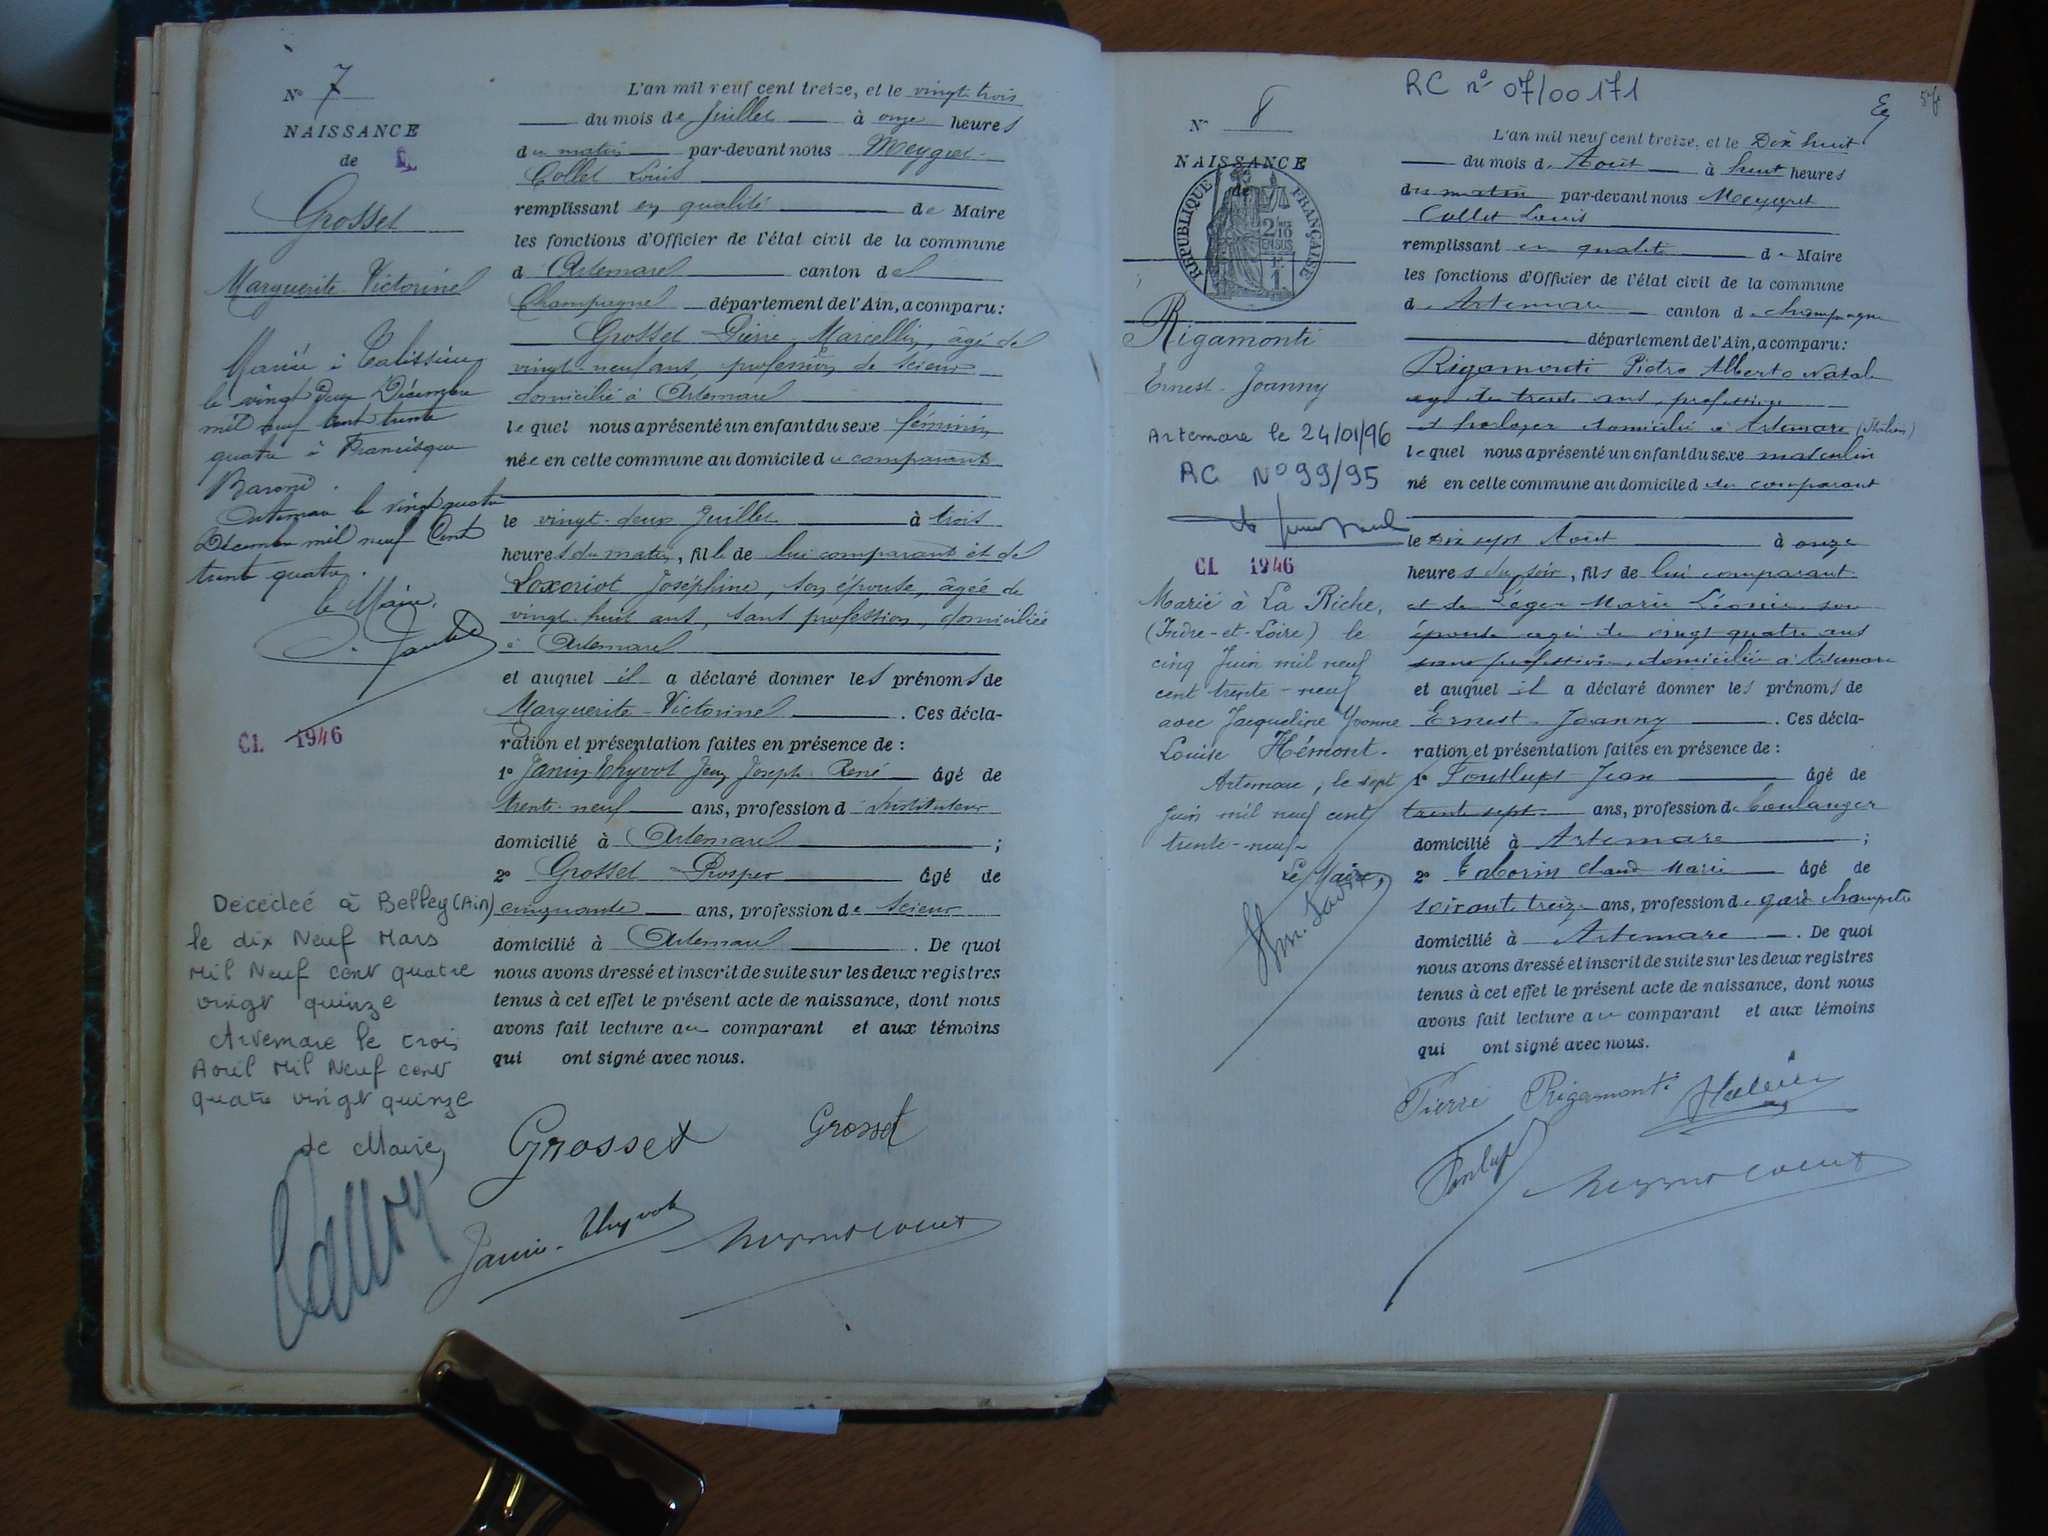 N° 7
NAISSANCE
de
Grosset
Marguerite Victorine
Mariée à Talissieu
le vingt deux Décembre
mil neuf cent trente
quatre à Francisque
Barone.
Artemare le vingt quatre
Décembre mil neuf Cent
trente quatre.
le Maire,
CL 1946
Décédée à Belley (Ain)
le dix Neuf Mars
Mil Neuf cent quatre
vingt quinze
Artemare le trois
Avril Mil Neuf cent
quatre vingt quinze
Le Maire,
L'an mil neuf cent treize, et le vingt trois
du mois de Juillet à onze heures
du matin par-devant nous Meygret-
Collet Louis
remplissant en qualité de Maire
les fonctions d'Officier de l'état civil de la commune
d'Artemare canton de
Champagne département de l'Ain, a comparu:
Grosset Pierre Marcellin, âgé de
vingt-neuf ans, profession de scieur
domicilié à Artemare
lequel nous a présenté un enfant du sexe féminin
née en cette commune au domicile du comparant
le vingt-deux Juillet à trois
heures du matin, fille de lui comparant et de
Joséphine, son épouse, âgée de
vingt huit ans, sans profession, domiciliée
à Artemare
et auquel il a déclaré donner les prénoms de
Marguerite-Victorine. Ces décla-
ration et présentation faites en présence de:
1° Janin-Thyvot Jean Joseph René âgé de
trente-neuf ans, profession d'instituteur
domicilié à Artemare;
2° Grosset Prosper âgé de
cinquante ans, profession de scieur
domicilié à Artemare. De quoi
nous avons dressé et inscrit de suite sur les deux registres
tenus à cet effet le présent acte de naissance, dont nous
avons fait lecture au comparant et aux témoins
qui ont signé avec nous.
Grosset Grosset
Janin-Thyvot Meygret Collet
RC n° 07/00171
N° 8
NAISSANCE
de
RÉPUBLIQUE FRANÇAISE
Rigamonti
Ernest-Joanny
Artemare le 24/01/96
RC N° 99/95
CL 1946
Marié à La Riche,
(Indre-et-Loire) le
cinq Juin mil neuf
cent trente-neuf
avec Jacqueline Yvonne
Louise Hémont.
Artemare, le sept
Juin mil neuf cent
trente-neuf
Le Maire,
L'an mil neuf cent treize, et le Dix huit
du mois d'Août à huit heures
du matin par-devant nous Meygret
Collet Louis
remplissant en qualité de Maire
les fonctions d'Officier de l'état civil de la commune
d'Artemare canton de Champagne
département de l'Ain, a comparu:
Rigamonti Pietro Alberto Natal
agé de trente ans, profession
d'horloger domicilié à Artemare (Italien)
lequel nous a présenté un enfant du sexe masculin
né en cette commune au domicile du comparant
le Dix sept Août à onze
heures du soir, fils de lui comparant
et de Léger Marie Léonie son
épouse agée de vingt quatre ans
sans profession, domiciliée à Artemare
et auquel il a déclaré donner les prénoms de
Ernest-Joanny. Ces décla-
ration et présentation faites en présence de:
1° Jean âgé de
trente sept ans, profession de boulanger
domicilié à Artemare;
2° Taborin Claude Marie âgé de
soixante treize ans, profession de garde champêtre
domicilié à Artemare. De quoi
nous avons dressé et inscrit de suite sur les deux registres
tenus à cet effet le présent acte de naissance, dont nous
avons fait lecture au comparant et aux témoins
qui ont signé avec nous.
Pierre Rigamonti
Meygret Collet